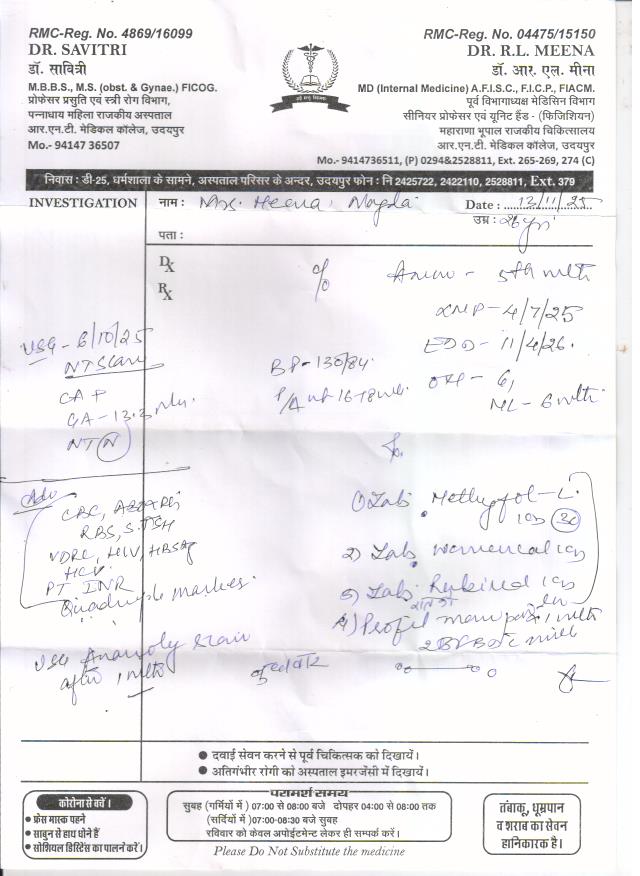 RMC-Reg. No. 4869/16099
DR. SAVITRI
डॉ. सावित्री
M.B.B.S., M.S. (obst. & Gynae.) FICOG.
प्रोफेसर प्रसुति एवं स्त्री रोग विभाग,
पन्नाधाय महिला राजकीय अस्पताल
आर.एन.टी. मेडिकल कॉलेज, उदयपुर
Mo.- 94147 36507
RMC-Reg. No. 04475/15150
DR. R.L. MEENA
डॉ. आर. एल. मीना
MD (Internal Medicine) A.F.I.S.C., F.I.C.P., FIACM.
पूर्व विभागाध्यक्ष मेडिसिन विभाग
सीनियर प्रोफेसर एवं यूनिट हैड - (फिजिशियन)
महाराणा भूपाल राजकीय चिकित्सालय
आर.एन.टी. मेडिकल कॉलेज, उदयपुर
Mo.- 9414736511, (P) 0294&2528811, Ext. 265-269, 274 (C)
निवास : डी-25, धर्मशाला के सामने, अस्पताल परिसर के अन्दर, उदयपुर फोन : नि 2425722, 2422110, 2528811, Ext. 379
INVESTIGATION
नाम : Mrs. Heena
Date : 12/11/25
उम्र : 26 yr
पता :
Dx
Rx
c/o - 5th mth
LMP - 4/7/25
EDD - 11/4/26.
USG - 6/10/25
NT Scan
GA - 13.3
NT (N)
BP - 130/84.
P/A ut 16-18
ML - 6 mth
Adv
CBC,
RBS, S. TSH
VDRL, HIV, HBSAg
HCV
PT INR
Quadruple marker
USG Anamoly scan
after 1 mth
1) Tab. Methyfol-L
1 OD (30)
2) Tab. 1 OD
3) Tab. 1 OD
4)
● दवाई सेवन करने से पूर्व चिकित्सक को दिखायें।
● अतिगंभीर रोगी को अस्पताल इमरजेंसी में दिखायें।
कोरोना से बचें ।
● फ़ेस मास्क पहने
● साबुन से हाथ धोने हैं
● सोशियल डिस्टिेंस का पालन करें।
परामर्श समय
सुबह (गर्मियों में ) 07:00 से 08:00 बजे दोपहर 04:00 से 08:00 तक
(सर्दियों में ) 07:00-08:30 बजे सुबह
रविवार को केवल अपोईटमेन्ट लेकर ही सम्पर्क करें।
Please Do Not Substitute the medicine
तंबाकू, धूम्रपान
व शराब का सेवन
हानिकारक है।